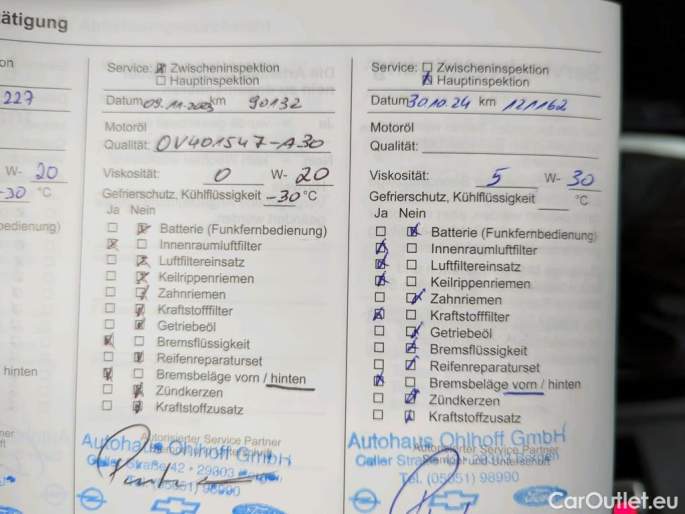 tätigung
on
227
W- 20
-30 °C
bedienung)
hinten
Service: ☒ Zwischeninspektion
☐ Hauptinspektion
Datum 09.11.2023 km 90132
Motoröl
Qualität: OV401547-A30
Viskosität: 0 W- 20
Gefrierschutz, Kühlflüssigkeit -30 °C
Ja Nein
☐ ☒ Batterie (Funkfernbedienung)
☒ ☐ Innenraumluftfilter
☐ ☒ Luftfiltereinsatz
☐ ☒ Keilrippenriemen
☐ ☒ Zahnriemen
☐ ☒ Kraftstofffilter
☐ ☒ Getriebeöl
☒ ☐ Bremsflüssigkeit
☐ ☒ Reifenreparaturset
☒ ☐ Bremsbeläge vorn / hinten
☐ ☒ Zündkerzen
☐ ☒ Kraftstoffzusatz
Autorisierter Service Partner
Autohaus Ohlhoff GmbH
Celler Straße 42 · 29303
(05051) 98990
Service: ☐ Zwischeninspektion
☒ Hauptinspektion
Datum 30.10.24 km 121162
Motoröl
Qualität:
Viskosität: 5 W- 30
Gefrierschutz, Kühlflüssigkeit °C
Ja Nein
☐ ☒ Batterie (Funkfernbedienung)
☒ ☐ Innenraumluftfilter
☒ ☐ Luftfiltereinsatz
☒ ☐ Keilrippenriemen
☐ ☒ Zahnriemen
☒ ☐ Kraftstofffilter
☐ ☒ Getriebeöl
☐ ☒ Bremsflüssigkeit
☐ ☒ Reifenreparaturset
☒ ☐ Bremsbeläge vorn / hinten
☐ ☒ Zündkerzen
☐ ☒ Kraftstoffzusatz
Autohaus Ohlhoff GmbH
Autorisierter Service Partner
Celler
Stempel und Unterschrift
Tel. (05051) 98990
Ford
CarOutlet.eu